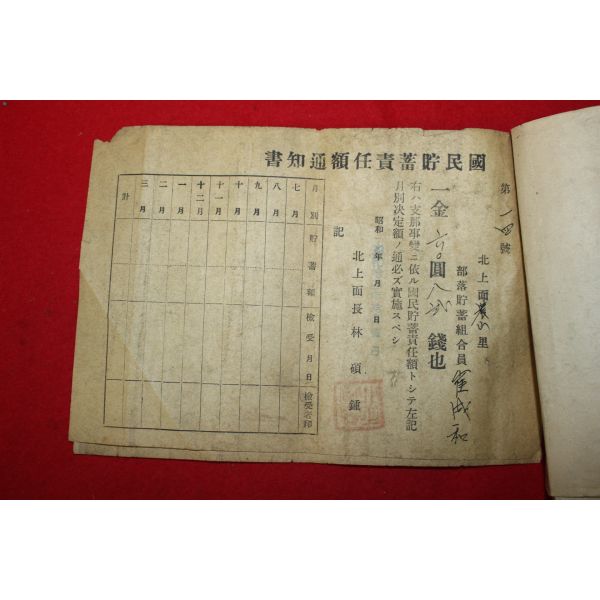 國民貯蓄責任額通知書
第一四號
北上面 里
部落貯蓄組合員 成和
一金 圓 錢也
右ハ支那事變ニ依ル國民貯蓄責任額トシテ左記
月別決定額ノ通必ズ實施スベシ
昭和 年 月 日
北上面長 林碩鍾
記
月別 貯蓄額 檢受月日 檢受者印
七月
八月
九月
十月
十一月
十二月
一月
二月
三月
計